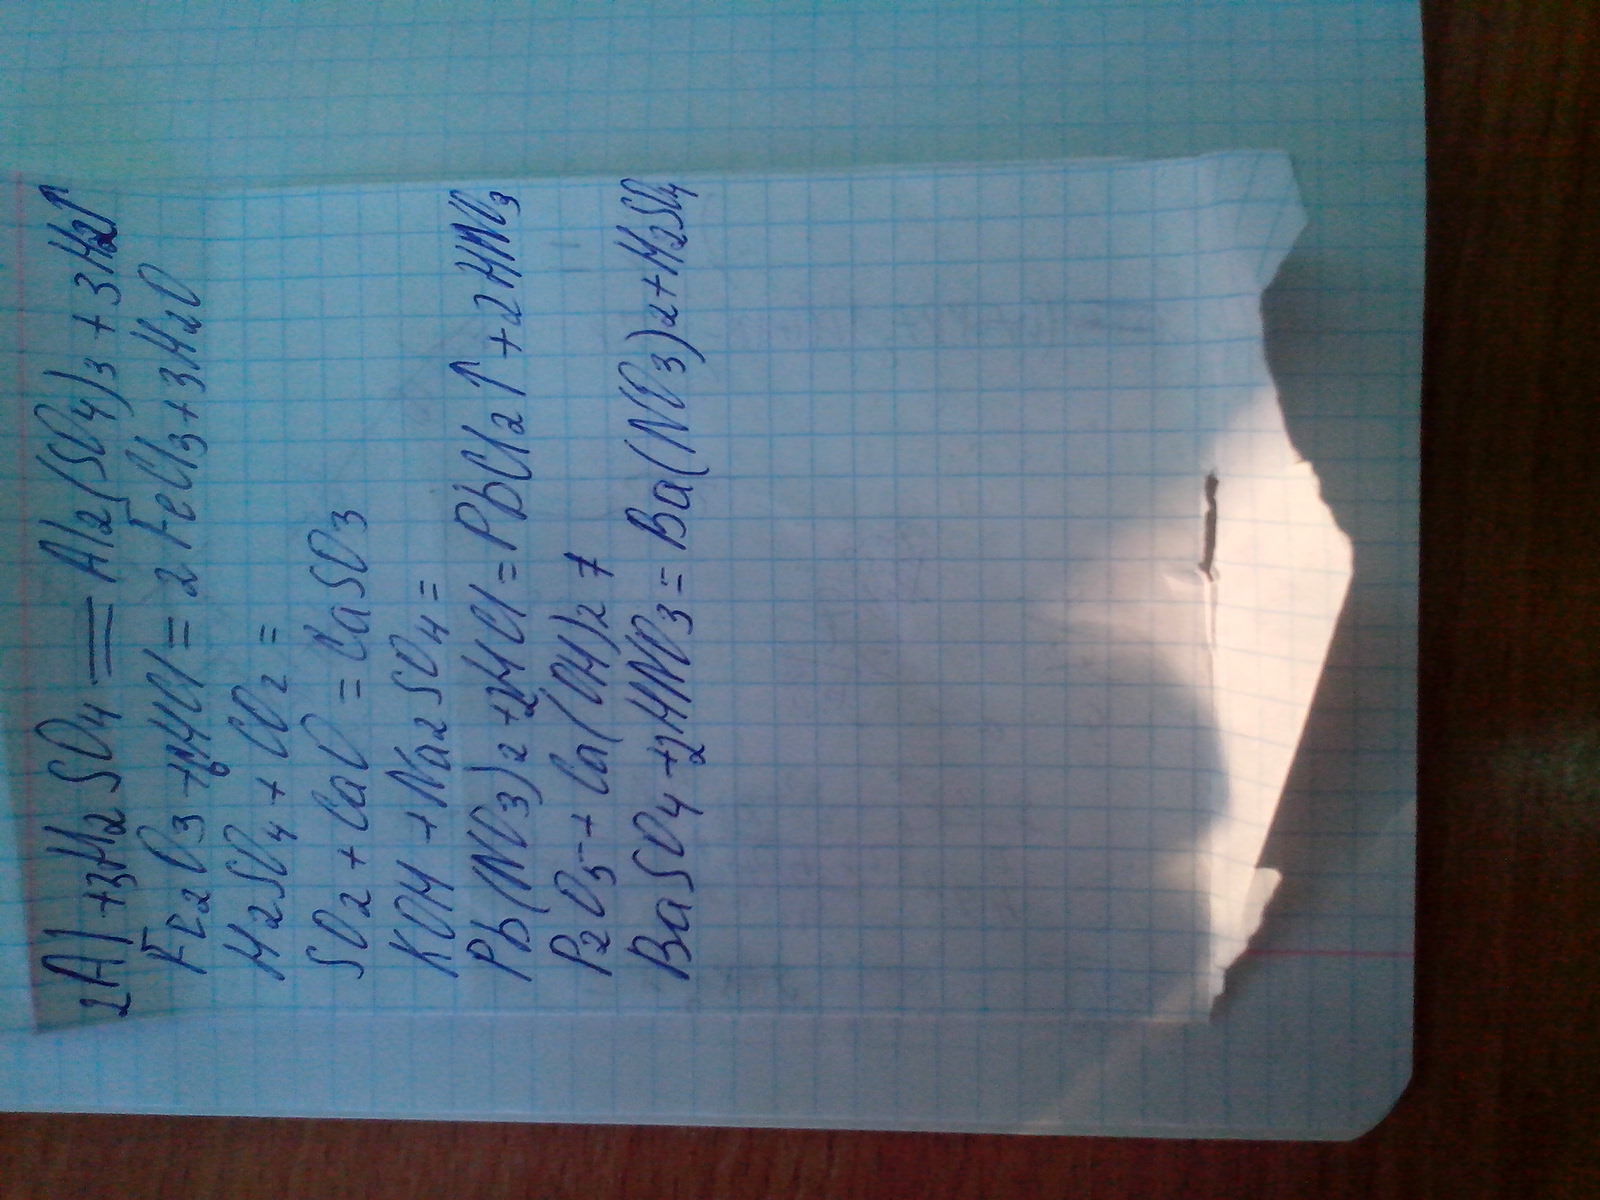 2Al+3H2SO4=Al2(SO4)3+3H2↑
Fe2O3+6HCl=2FeCl3+3H2O
H2SO4+CO2=
SO2+CaO=CaSO3
KOH+Na2SO4=
Pb(NO3)2+2HCl=PbCl2↑+2HNO3
P2O5+Ca(OH)2≠
BaSO4+2HNO3=Ba(NO3)2+H2SO4